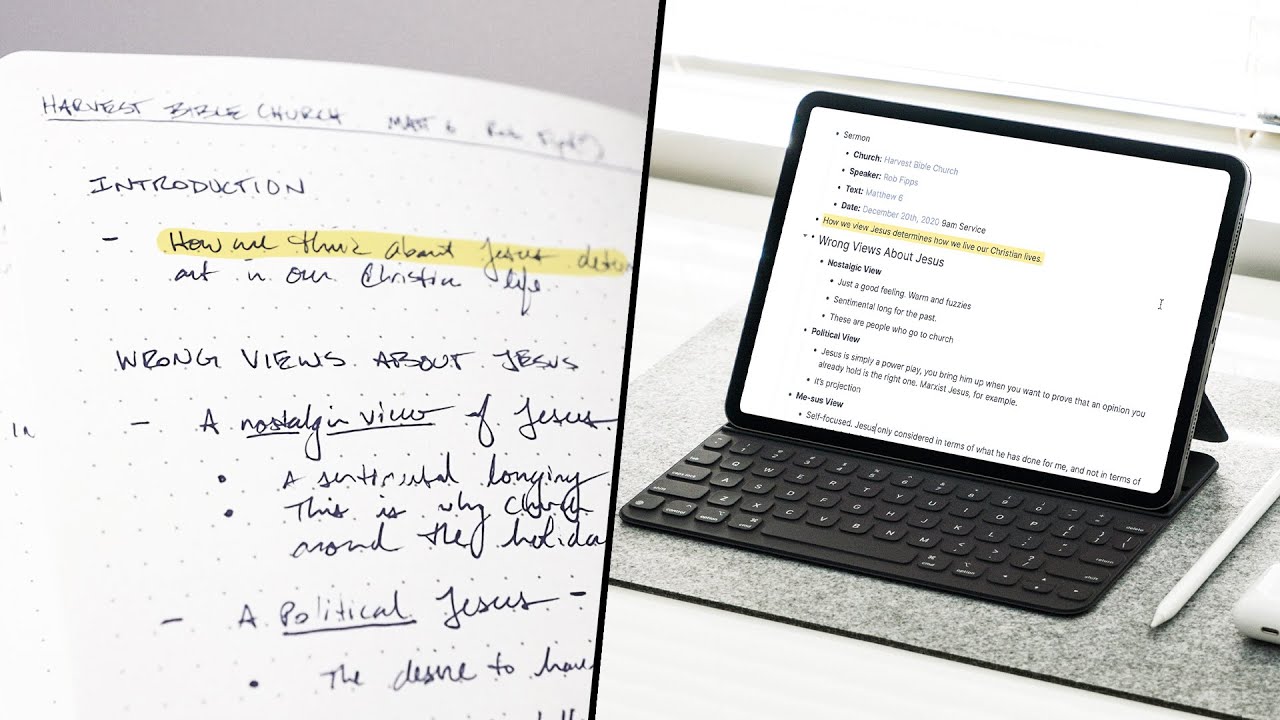 HARVEST BIBLE CHURCH MATT 6 Rob
INTRODUCTION
- How we think about Jesus deter
out in our Christian life.
WRONG VIEWS ABOUT JESUS
- A nostalgic view of Jesus
• A sentimental longing
• This is why Church
around the holida
- A Political Jesus -
• The desire to have
• Sermon
• Church: Harvest Bible Church
• Speaker: Rob Fipps
• Text: Matthew 6
• Date: December 20th, 2020 9am Service
• How we view Jesus determines how we live our Christian lives.
• Wrong Views About Jesus
• Nostalgic View
• Just a good feeling. Warm and fuzzies
• Sentimental long for the past.
• These are people who go to church
• Political View
• Jesus is simply a power play, you bring him up when you want to prove that an opinion you
already hold is the right one. Marxist Jesus, for example.
• It's projection
• Me-sus View
• Self-focused. Jesus only considered in terms of what he has done for me, and not in terms of